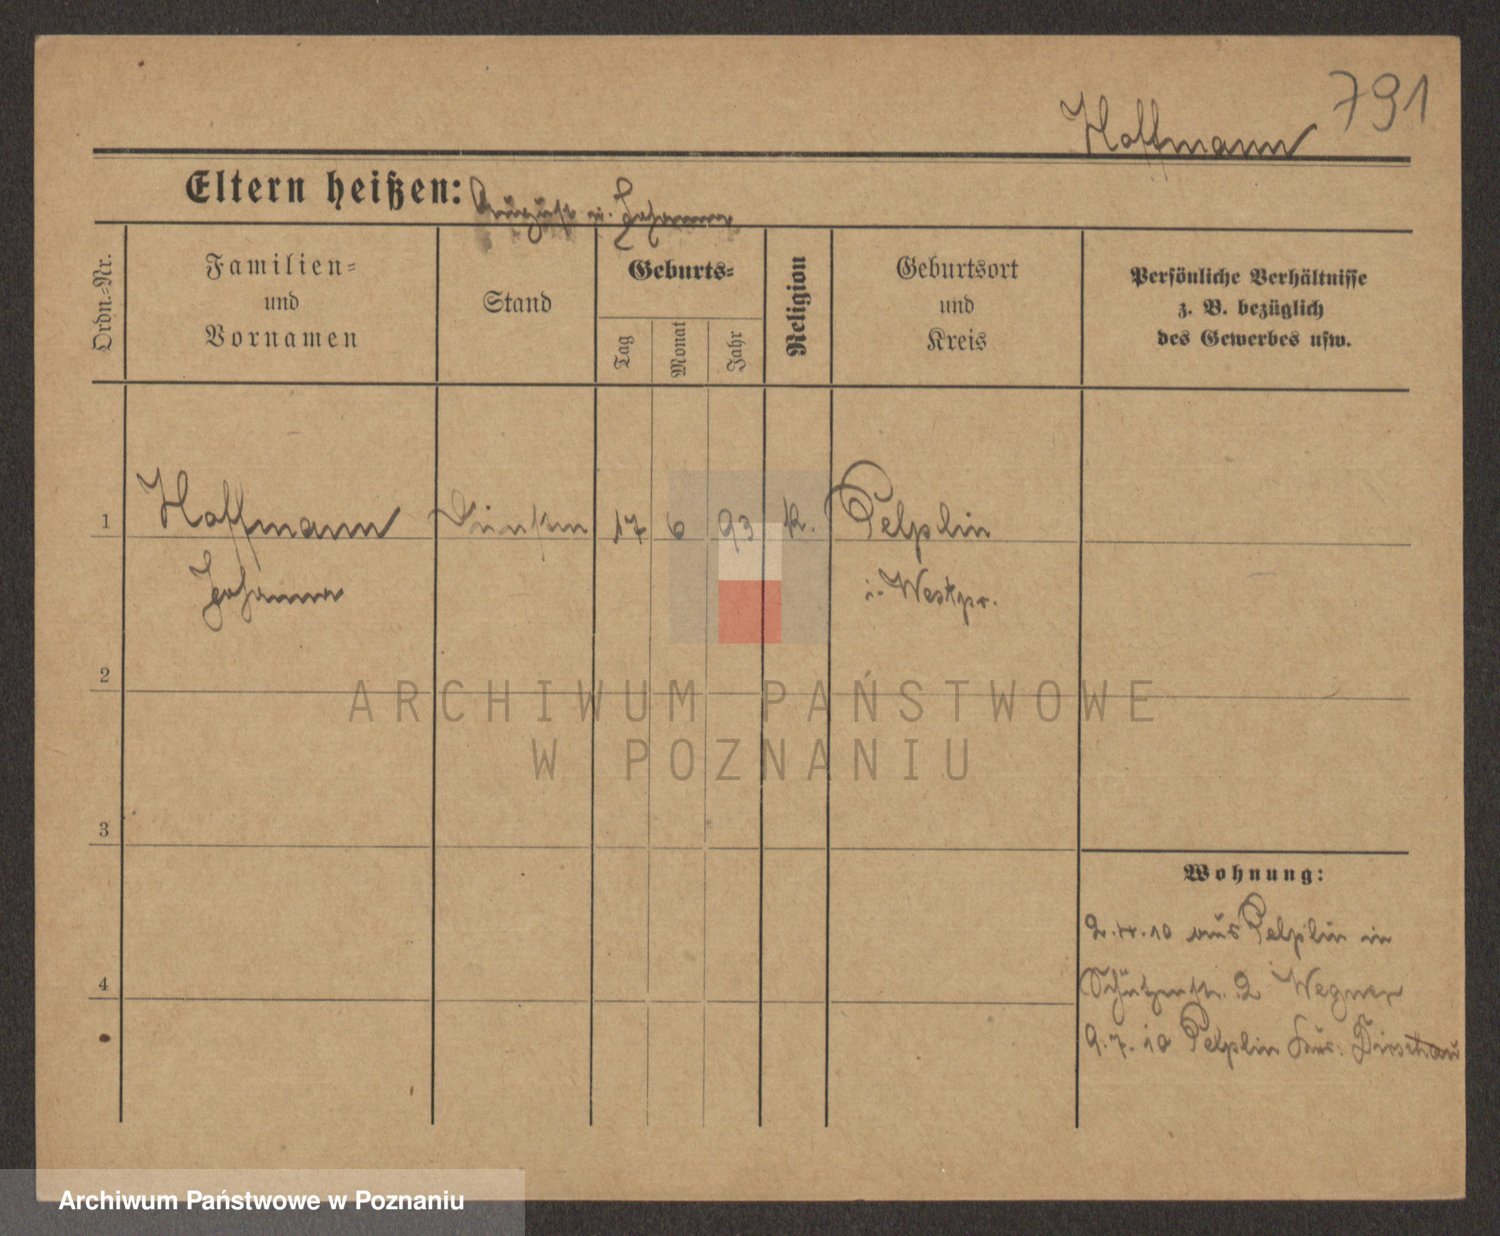 791
Hoffmann
Eltern heißen: August u. Johanna
Ordn.=Nr.
Familien=
und
Vornamen
Stand
Geburts=
Tag
Monat
Jahr
Religion
Geburtsort
und
Kreis
Persönliche Verhältnisse
z. B. bezüglich
des Gewerbes usw.
1 Hoffmann 17 6 93 k. Pelplin
Johanna i. Westpr.
2
3
4
Wohnung:
2. 10 aus Pelplin in
Schützenstr. 2 Wegner
9. 7. 10 Pelplin Dirschau
ARCHIWUM PAŃSTWOWE
W POZNANIU
Archiwum Państwowe w Poznaniu